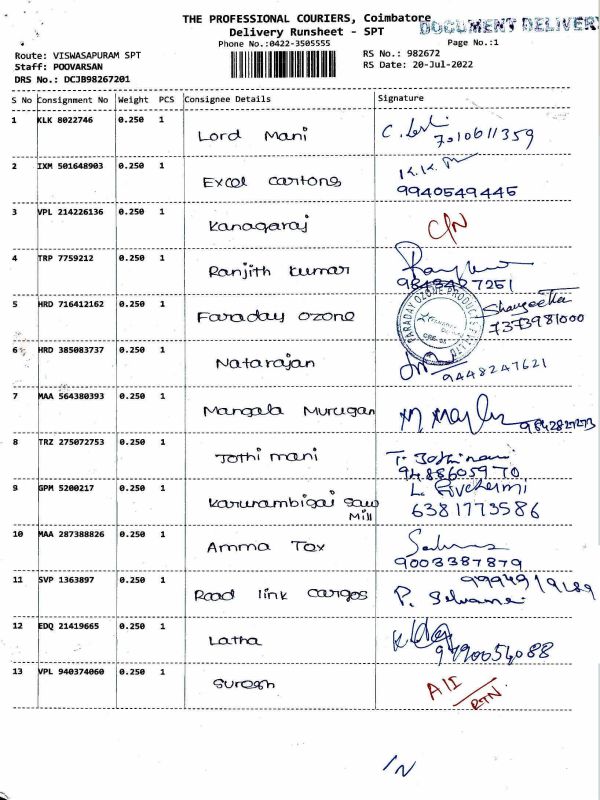 THE PROFESSIONAL COURIERS, Coimbatore
DOCUMENT DELIVERY
Delivery Runsheet - SPT
Phone No.:0422-3505555
Page No.:1
Route: VISWASAPURAM SPT
RS No.: 982672
Staff: POOVARSAN
RS Date: 20-Jul-2022
DRS No.: DCJB98267201
S No Consignment No Weight PCS Consignee Details Signature
1 KLK 8022746 0.250 1 Lord Mani
7010611359
2 IXM 501648903 0.250 1 Excel cartons K.K.
9940549445
3 VPL 214226136 0.250 1 Kanagaraj C/N
4 TRP 7759212 0.250 1 Ranjith kumar
5 HRD 716412162 0.250 1 Faraday ozone Shangeetha
7373981000
FARADAY OZONE PRODUCTS
6 HRD 385083737 0.250 1 Natarajan
9448247621
7 MAA 564380393 0.250 1 Mangala Murugan
9842827273
8 TRZ 275072753 0.250 1 Jothi mani T. Jothimani
9488605970
9 GPM 5200217 0.250 1 Karurambigai saw
Mill
6381773586
10 MAA 287388826 0.250 1 Amma Tex
9003387879
11 SVP 1363897 0.250 1 Road link cargos P.
12 EDQ 21419665 0.250 1 Latha
9790054088
13 VPL 940374060 0.250 1 Suresh
RTN